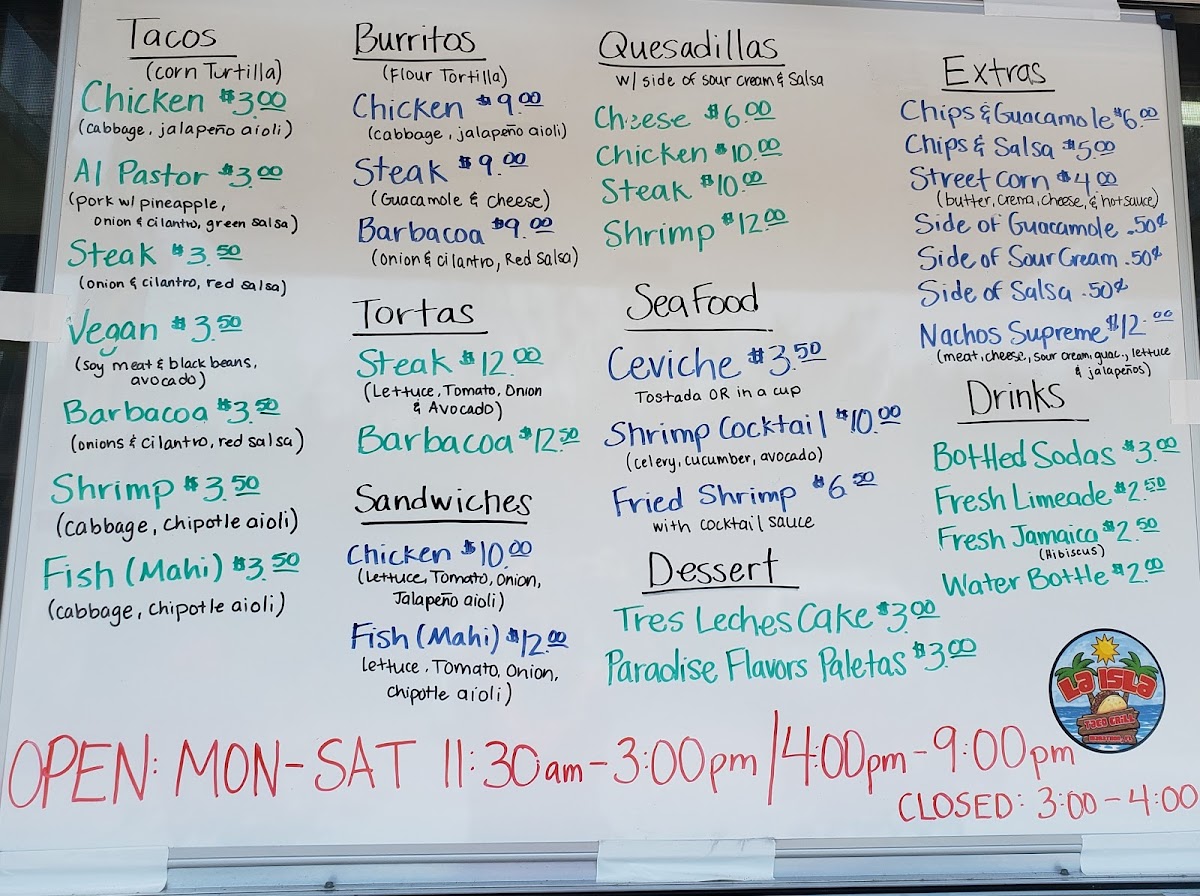 Tacos
(corn Turtilla)
Chicken $3.00
(cabbage, jalapeño aioli)
Al Pastor $3.00
(pork w/ pineapple,
onion & cilantro, green salsa)
Steak $3.50
(onion & cilantro, red salsa)
Vegan $3.50
(soy meat & black beans,
avocado)
Barbacoa $3.50
(onions & cilantro, red salsa)
Shrimp $3.50
(cabbage, chipotle aioli)
Fish (Mahi) $3.50
(cabbage, chipotle aioli)
Burritos
(Flour Tortilla)
Chicken $9.00
(cabbage, jalapeño aioli)
Steak $9.00
(Guacamole & cheese)
Barbacoa $9.00
(onion & cilantro, Red Salsa)
Tortas
Steak $12.00
(Lettuce, Tomato, Onion
& Avocado)
Barbacoa $12.50
Sandwiches
Chicken $10.00
(lettuce, Tomato, Onion,
Jalapeño aioli)
Fish (Mahi) $12.00
lettuce, Tomato, Onion,
chipotle aioli)
Quesadillas
w/ side of sour cream & Salsa
Cheese $6.00
Chicken $10.00
Steak $10.00
Shrimp $12.00
Sea Food
Ceviche $3.50
Tostada OR in a cup
Shrimp Cocktail $10.00
(celery, cucumber, avocado)
Fried Shrimp $6.50
with cocktail sauce
Dessert
Tres Leches Cake $3.00
Paradise Flavors Paletas $3.00
Extras
Chips & Guacamole $6.00
Chips & Salsa $5.00
Street Corn $4.00
(butter, crema, cheese, & hot sauce)
Side of Guacamole .50¢
Side of Sour Cream .50¢
Side of Salsa .50¢
Nachos Supreme $12.00
(meat, cheese, sour cream, guac., lettuce
& jalapeños)
Drinks
Bottled Sodas $3.00
Fresh Limeade $2.50
Fresh Jamaica $2.50
(Hibiscus)
Water Bottle $2.00
LA ISLA
TACO GRILL
MARATHON, FL
OPEN: MON-SAT 11:30am-3:00pm/4:00pm-9:00pm
CLOSED: 3:00-4:00